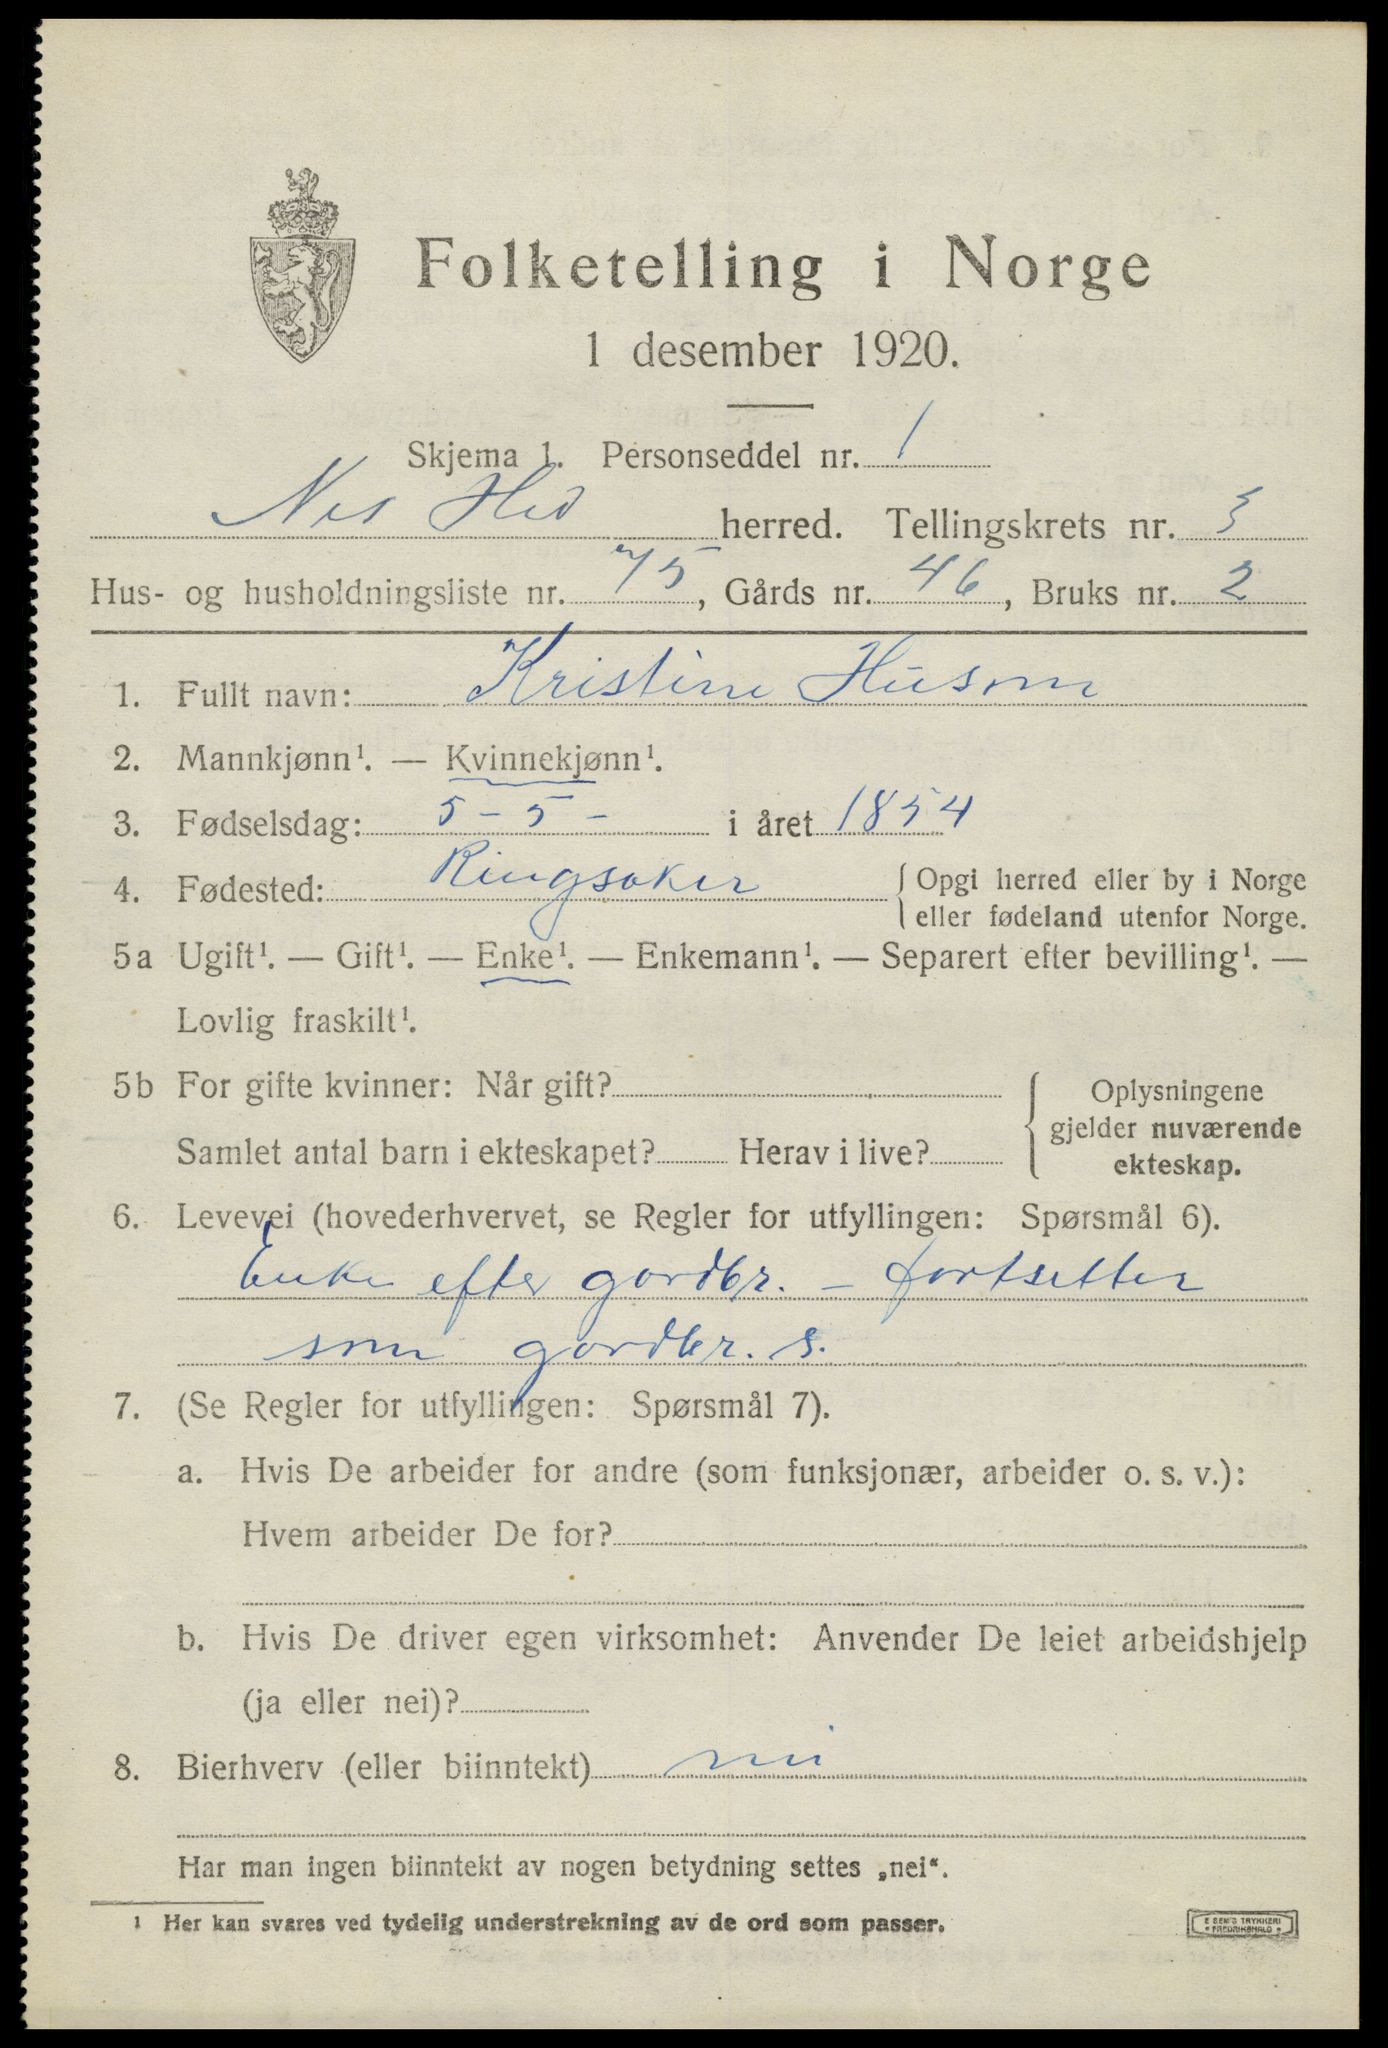 Folketelling i Norge
1 desember 1920.
Skjema 1. Personseddel nr. 1
Nes Hed herred. Tellingskrets nr. 3
Hus- og husholdningsliste nr. 75, Gårds nr. 46, Bruks nr. 2
1. Fullt navn: Kristine Husom
2. Mannkjønn¹. — Kvinnekjønn¹.
3. Fødselsdag: 5 - 5 - i året 1854
4. Fødested: Ringsaker { Opgi herred eller by i Norge
eller fødeland utenfor Norge.
5a Ugift¹. — Gift¹. — Enke¹. — Enkemann¹. — Separert efter bevilling¹. —
Lovlig fraskilt¹.
5b For gifte kvinner: Når gift?
Samlet antal barn i ekteskapet? Herav i live?
{ Oplysningene
gjelder nuværende
ekteskap.
6. Levevei (hovederhvervet, se Regler for utfyllingen: Spørsmål 6).
Enke efter gardbr. - fortsetter
som gardbr. s.
7. (Se Regler for utfyllingen: Spørsmål 7).
a. Hvis De arbeider for andre (som funksjonær, arbeider o. s. v.):
Hvem arbeider De for?
b. Hvis De driver egen virksomhet: Anvender De leiet arbeidshjelp
(ja eller nei)?
8. Bierhverv (eller biinntekt) nei
Har man ingen biinntekt av nogen betydning settes „nei“.
¹ Her kan svares ved tydelig understrekning av de ord som passer.
E SEM'S TRYKKERI
• FREDRIKSHALD •